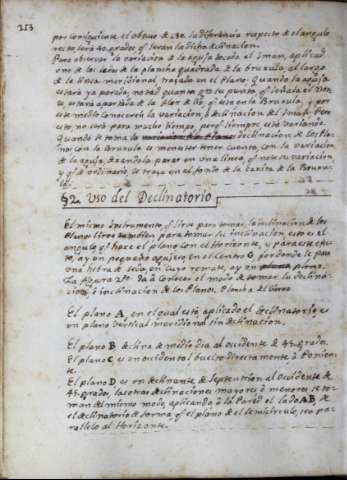 213
por consiguiente el obtuso de 130. la diferencia respecto de el angulo
recto sera 40. grados q̃ seran la dicha declinacion.
Para observar la variacion de la aguja tocada al Iman, aplicad
uno de los lados de la plancha quadrada de la bruxula, al largo
de la linea meridional, trazada en el Plano. Quando la aguja
estara ya parada, notad quanta
estara apartada de la flor de lis, q̃ esta en la Bruxula, y por
este medio conocereis la variacion, o declinacion del Iman.
no sera para mucho tiempo, porq̃ siempre esta variando.
Quando se toma la declinacion de los Pla-
nos con la Bruxula es menester tener cuenta, con la variacion
de la aguja, dexandola parar en una linea, q̃ note su variacion,
y q̃ de ordinario se traza en el fondo de la caxita de la Bruxu-
la.
§2. Uso del Declinatorio
El mismo Instrumento q̃ sirve para tomar la inclinacion de los
Planos sirve tambien para tomar su inclinacion esto es el
angulo q̃ hace el plano con el Horizonte, y para este efec-
to, ay un pequeño agujero en el Centro G por donde se pasa
una hebra de seda, en cuyo remate, ay un plomo.
La figura 2ª. Da à conocer el modo de tomar la declina-
cion, è inclinacion de los Planos,
El plano A, en el qual està aplicado el declinatorio, es
un plano vertical meridional sin declinacion.
El plano B declina de medio dia al occidente de 45. grados.
El plano C es un occidental buelto directamente à Ponien-
te.
El plano D es un declinante de Septentrion al occidente de
45. grados, las otras declinaciones mayores ò menores se to-
man del mismo modo, aplicando à la Pared el lado AB de
el declinatorio de forma, q̃ el plano de el semicirculo, sea pa-
rallelo al Horizonte.